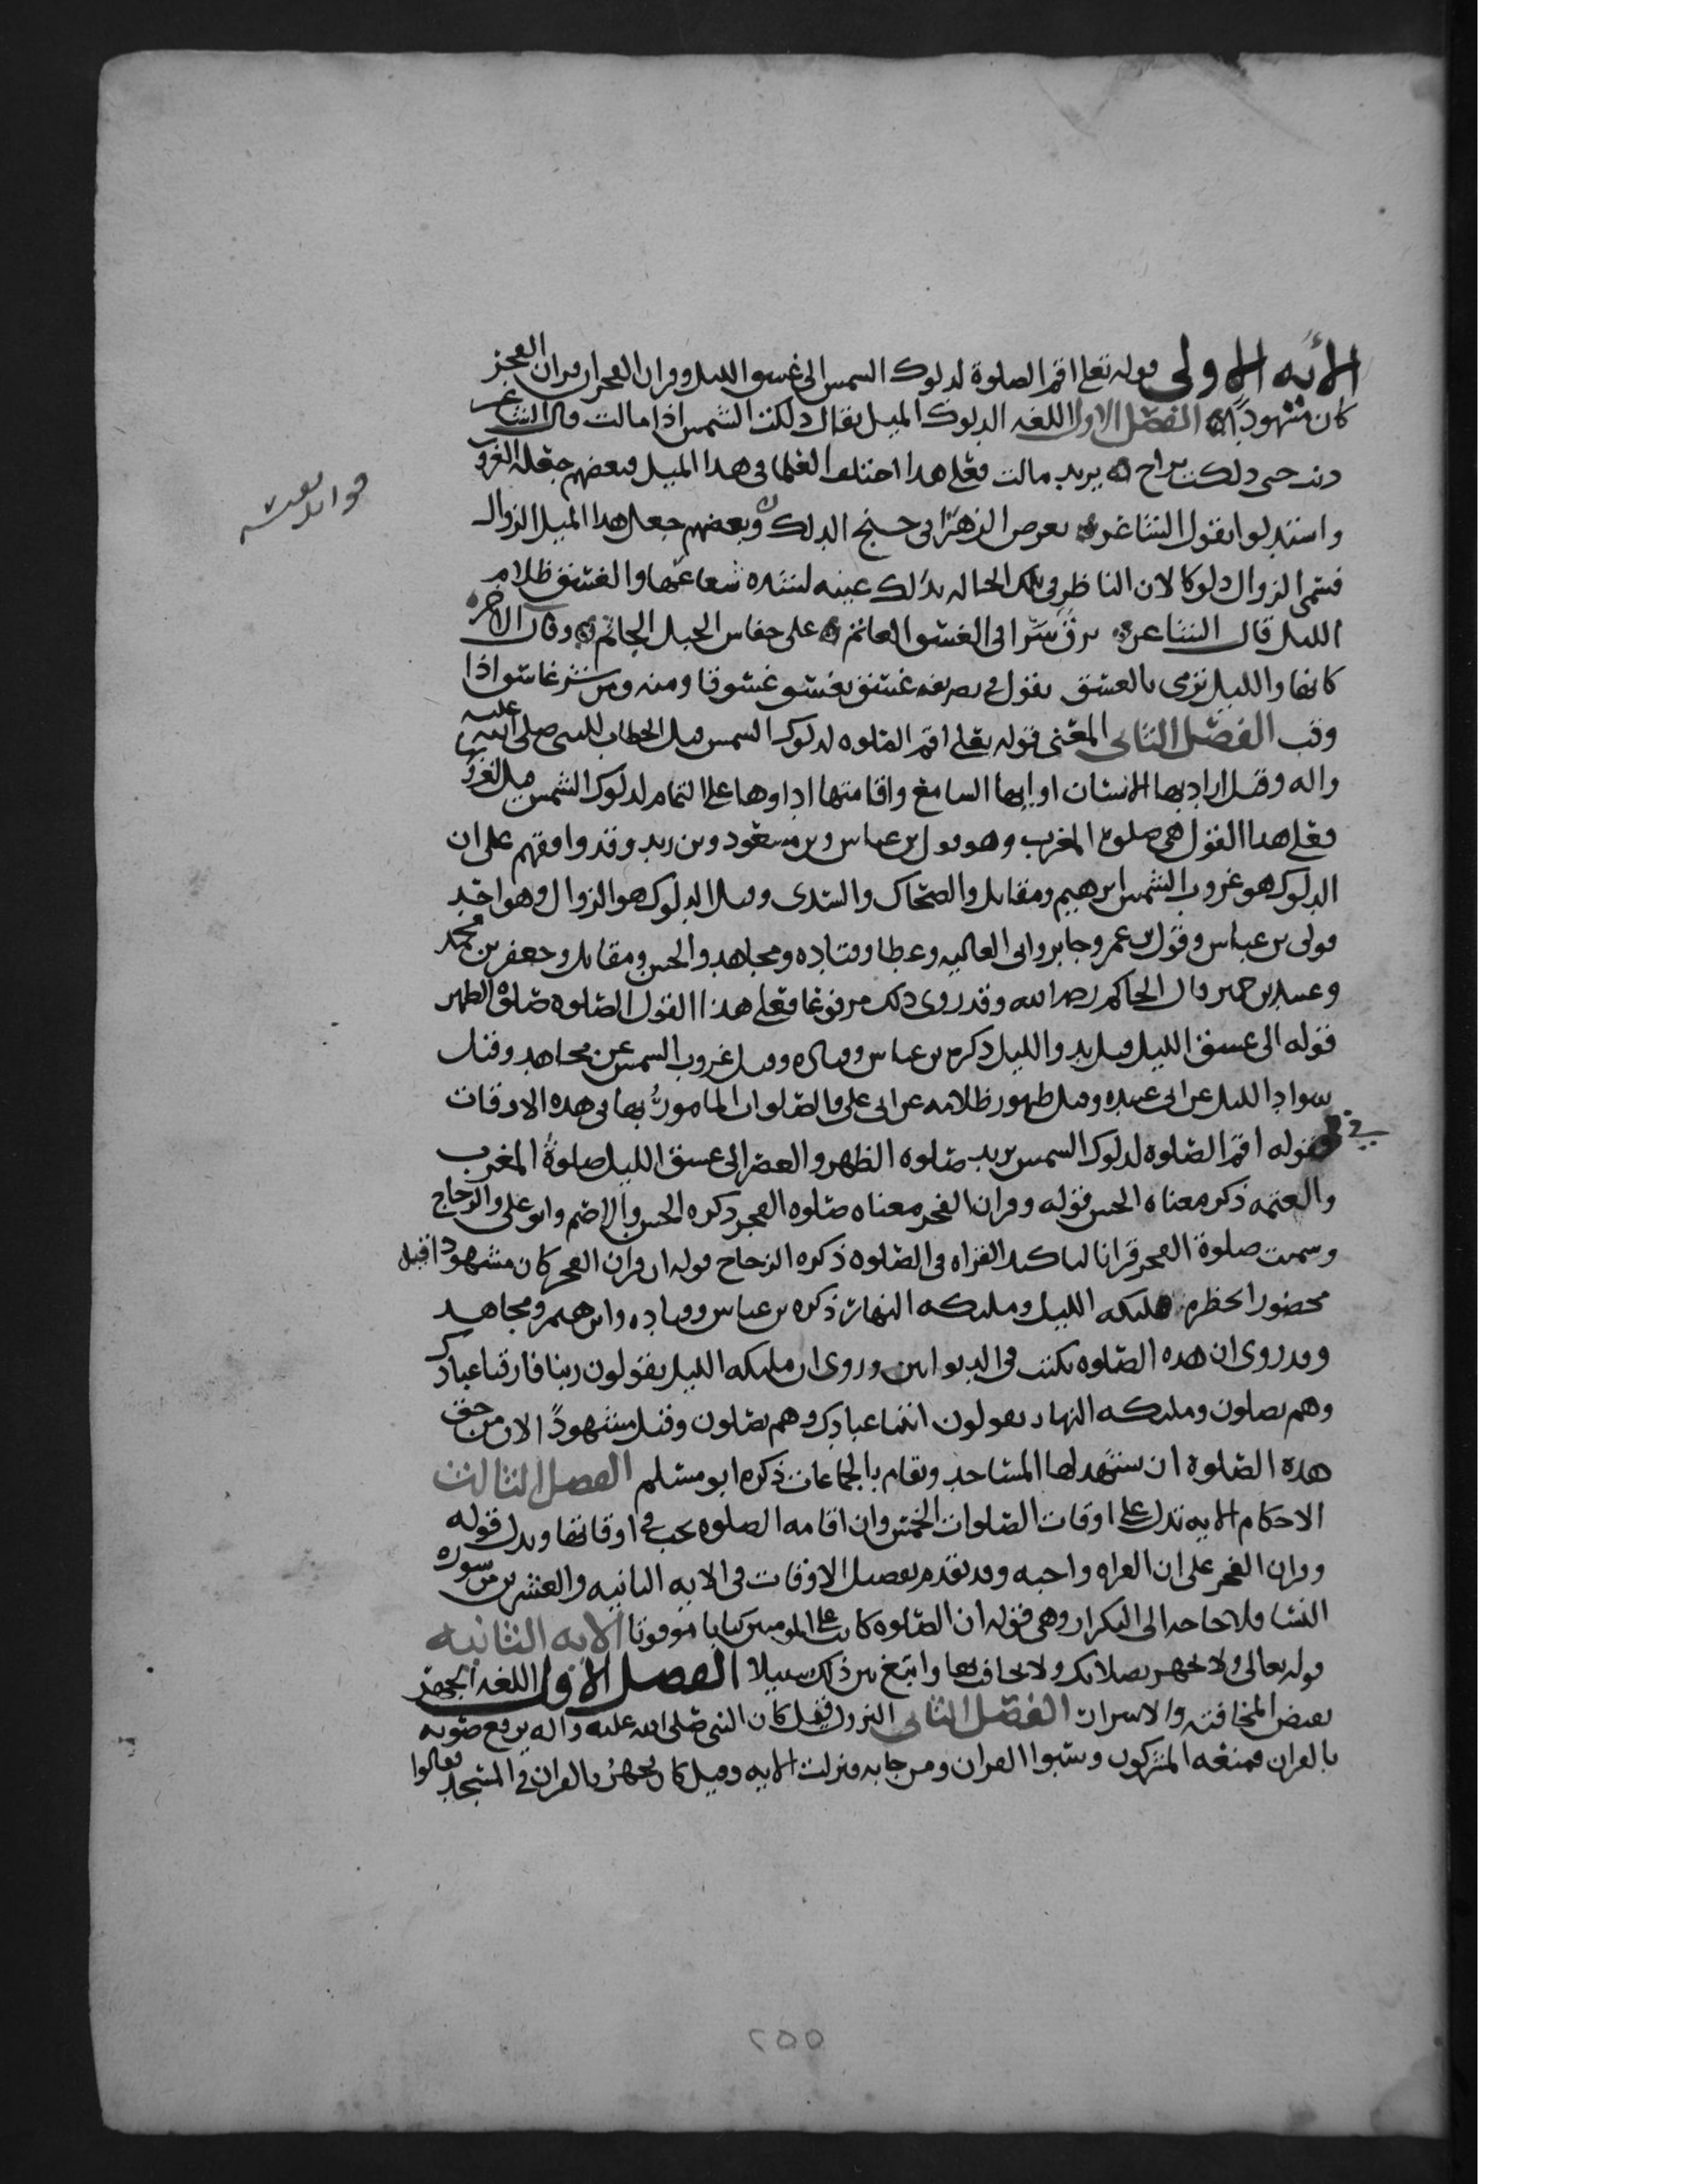 الآيه الاولى قوله تعلى اقم الصلوة لدلوك الشمس الى غسق الليل وقران الفجر ان قران الفجر
كان مشهوداً الفصل الاول اللغه الدلوك الميل يقال دلكت الشمس اذا مالت قال الشاعر
حتى دلكت براح يريد مالت فعلى هذا اختلف العلما في هذا الميل فبعضهم جعله الغروب
واستدلوا بقول الشاعر الزهرا في جنح الدلك وبعضهم جعل هذا الميل الزوال
فسمى الزوال دلوكا لان الناظر في تلك الحاله يدلك عينه لشده شعاعها والغسق ظلام
الليل قال الشاعر الى الغسق العاتم على الجبل الجاثم وقال الاخر
كانها والليل ترمي بالغسق يقول في تصريفه غسق يغسق غسوقا ومنه ومن شر غاسق اذا
وقب الفصل الثاني المعنى قوله تعلى اقم الصلوه لدلوك الشمس قيل الخطاب للنبي صلى الله عليه
واله وقيل اراد بها الانسان او ايها السامع واقامتها اداوها على التمام لدلوك الشمس قيل الغروب
فعلى هذا القول هي صلوة المغرب وهو قول بن عباس وبن مسعود وبن زيد وقد وافقهم على ان
الدلوك هو غروب الشمس ابرهيم ومقاتل والضحاك والسدى وقيل الدلوك هو الزوال وهو احد
قولى بن عباس وقول بن عمر وجابر وابى العاليه وعطا وقتاده ومجاهد والحسن ومقاتل وجعفر بن محمد
قال الحاكم رحمه الله وقد روى ذلك مرفوعا فعلى هذا القول الصلوه صلوة الظهر
قوله الى غسق الليل قيل بدو الليل ذكره بن عباس وقتاده وقيل غروب الشمس عن مجاهد وقيل
سواد الليل عن ابى عبيده وقيل ظهور ظلامه عن ابى على والصلوات المامور بها في هذه الاوقات
في قوله اقم الصلوه لدلوك الشمس يريد صلوه الظهر والعصر الى غسق الليل صلوة المغرب
والعتمه ذكر معناه الحسن قوله وقران الفجر معناه صلوه الفجر ذكره الحسن والاصم وابو على والزجاج
وسميت صلوة الفجر قرانا لتاكيد القراه في الصلوه ذكره الزجاج قوله ان قران الفجر كان مشهودا قيل
محضورا تحظره مليكه الليل ومليكه النهار ذكره بن عباس وقتاده وابرهيم ومجاهد
وقد روى ان هذه الصلوه تكتب في الديوانين وروى ان مليكه الليل يقولون ربنا فارقنا عبادك
وهم يصلون ومليكه النهار يقولون اتينا عبادك وهم يصلون وقيل مشهوداً لان من حق
هذه الصلوة ان تشهد لها المساجد وتقام بالجماعات ذكره ابو مسلم الفصل الثالث
الاحكام الايه تدل على اوقات الصلوات الخمس وان اقامه الصلوه تجب في اوقاتها ويدل قوله
وقران الفجر على ان القراه واجبه وقد تقدم تفصيل الاوقات في الايه الثانيه والعشرين من سورة
النسا فلا حاجه الى التكرار وهي قوله ان الصلوه كانت على المومنين كتابا موقوتا الايه الثانيه
قوله تعالى ولا تجهر بصلاتك ولا تخافت بها وابتغ بين ذلك سبيلا الفصل الاول اللغه الجهر
نقيض المخافته والاسرار الفصل الثاني النزول قيل كان النبي صلى الله عليه واله يرفع صوته
بالقران فمنعه المشركون وسبوا القران ومن جا به فنزلت الايه وقيل كان يجهر بالقران في المسجد فقالوا
٢٥٥